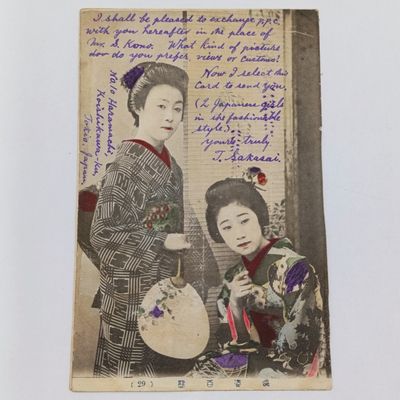 I shall be pleased to exchange p.p.c.
with you hereafter in the place of
Mr. S. Kono. What kind of picture
dov do you prefer, views or customs?
Now I select this
Card to send you,
(2 Japanese girls
in the fashionable
style.)
yours truly
T. Sakasai
No10 Haramachi,
Koishikawa-ku,
Tokio, Japan,
(29)
百